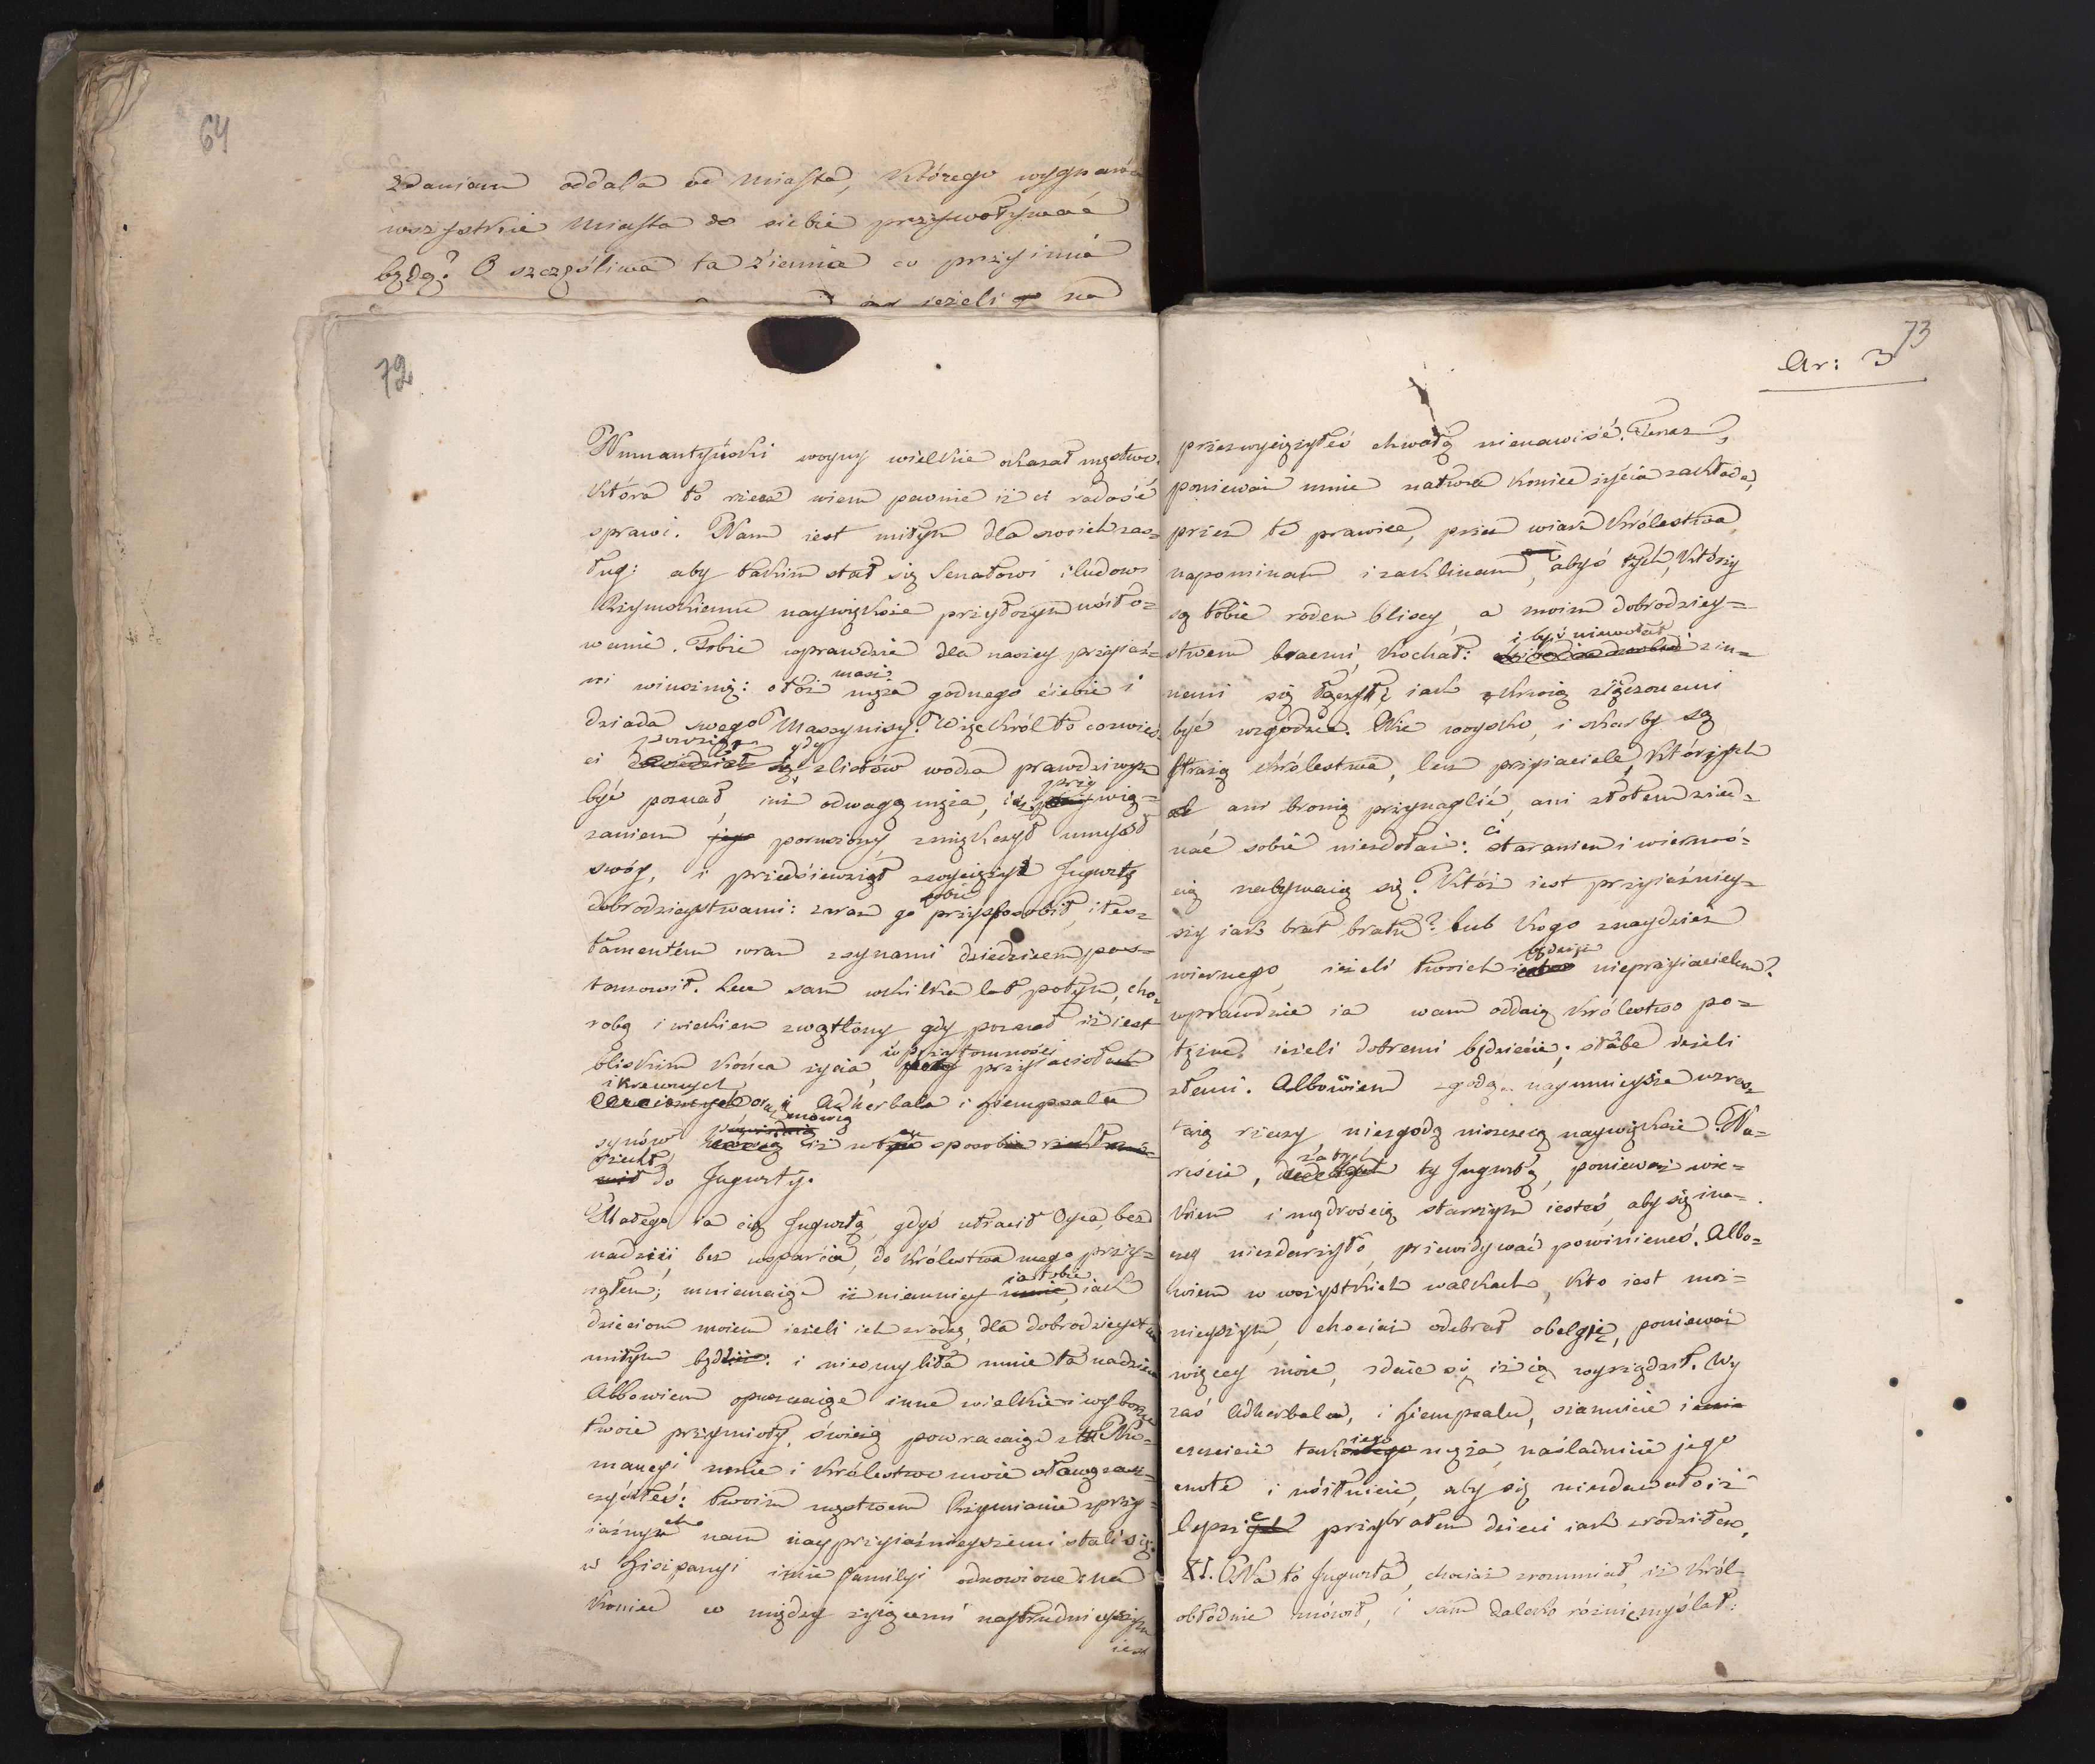 64
zdaniem oddala od Miasta, którego wygnańca
wszystkie Miasta do siebie przywoływać
będą? O szczęśliwa ta ziemia co przyimie
ieżeli na
72
Numantyński woyny wielkie okazał męstwo.
która to rzecz wiem pewnie iż ci radość
sprawi. Nam iest miłym dla swoich zas=
ług: aby takim stał się Senatowi i ludowi
Rzymskiemu naywiększe przyłożym usiło=
wanie. Tobie wprawdzie dla naszey przyiaź=
ni winszuię: otóż masz męża godnego ciebie i
dziada swego Massynisy. Więc król to co
ci gdy z listów wodza prawdziwym
być poznał, iuż odwagą męża, iuż przywią=
zaniem jego poruszony zmiękczył umysł
swóy, i przedsiewziął zwyciężyć Jugurtę
dobrodzieystwami: zaraz go sobie przysposobił, i tes=
tamentem wraz z synami dziedzicem pos=
tanowił. Lecz sam w kilka lat potym, cho=
robą i wiekiem zwątlony gdy poznał iż iest
bliskim końca życia, w przytomności przyiaciół
i krewnych oraz Adherbala i Hiempsala
synów mówią iż w ten sposób
rzekł do Jugurty.
Małego ia cię Jugurtę, gdyś utracił Oyca, bez
nadziei, bez wsparcia, do królestwa mego przy=
iąłem; mniemaiąc iż niemniey ia tobie, iak
dzieciom moiem ieżeli ich zrodzę, dla dobrodzieystw
miłym będę: i nieomyliła mnie ta nadzieia
Albowiem opuszczaiąc inne wielkie i wyborne
twoie przymioty, świeżo powracaiąc z Nu=
mancyi mnie i królestwo moie sławą zasz=
czyciłeś: twoim męstwem Rzymianie z przy=
iaznych nam nayprzyiaźnieyszemi stali się.
w Hiszpanyi imie familyi odnowione: na
koniec co między żyiącemi naytrudnieyszym
iest
73
Ar: 3
przezwyciężyłeś chwałą nienawiść. Teraz,
ponieważ mnie natura koniec życia zakłada,
przez tę prawicę, przez wiarę królestwa
napominam i zaklinam, abyś tych, którzy
są tobie rodem bliscy, a moim dobrodziey=
stwem bracmi, kochał: i byś niewolał z in=
nemi się łączyć iak z krwią złączonemi
być w zgodzie. Nie woysko, i skarby są
strażą królestwa, lecz przyiaciele, których
ani bronią przynaglić, ani złotem zied=
nać sobie niezdołasz: ci staraniem i wiernoś=
cią nabywaią się. Któż iest przyiaźniey=
szy iak brat bratu? lub kogo znaydziesz
wiernego, ieżeli twoich będziesz nieprzyiacielem?
wprawdzie ia wam oddaię królestwo po=
tężne, ieżeli dobremi będziecie; słabe ieżeli
złemi. Albowiem zgodą naymnieysze wzras=
taią rzeczy, niezgodą niszczeią naywiększe. Na=
reście, zatym ty Jugurto, ponieważ wie=
kiem i mądrością starszym iesteś, aby się ina=
czey niezdarzyło, przewidywać powinieneś. Albo=
wiem w wszystkich walkach, kto iest moż=
nieyszym, chociaż odebrał obelgię, ponieważ
więcey może, zdaie się iż ią wyrządził. Wy
zaś Adherbalu, i Hiempsalu, szanuicie i
czcicie takiego męża, naśladuicie jego
cnotę i usiłuicie, aby się niezdawało iż
lepsze przybrałem dzieci iak zrodziłem.
XI. Na to Jugurta, chociaż zrozumiał iż król
obłudnie mówił, i sam daleko różnie myślał: